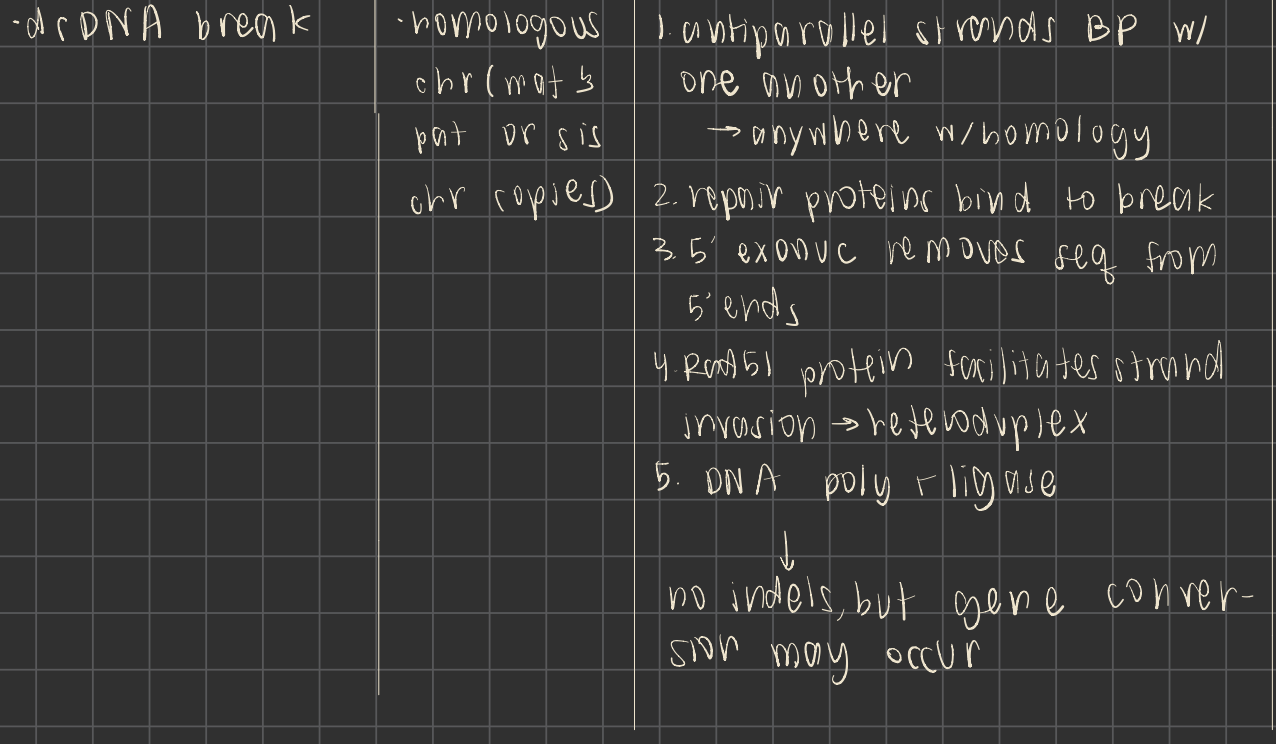 ·dsDNA break
·homologous
chr (mat &
pat or sis
chr copies)
1. antiparallel strands BP w/
one another
→ anywhere w/homology
2. repair proteins bind to break
3. 5' exonuc removes seq from
5' ends
4. Rad51 protein facilitates strand
invasion → heteroduplex
5. DNA poly + ligase
↓
no indels, but gene conver-
sion may occur